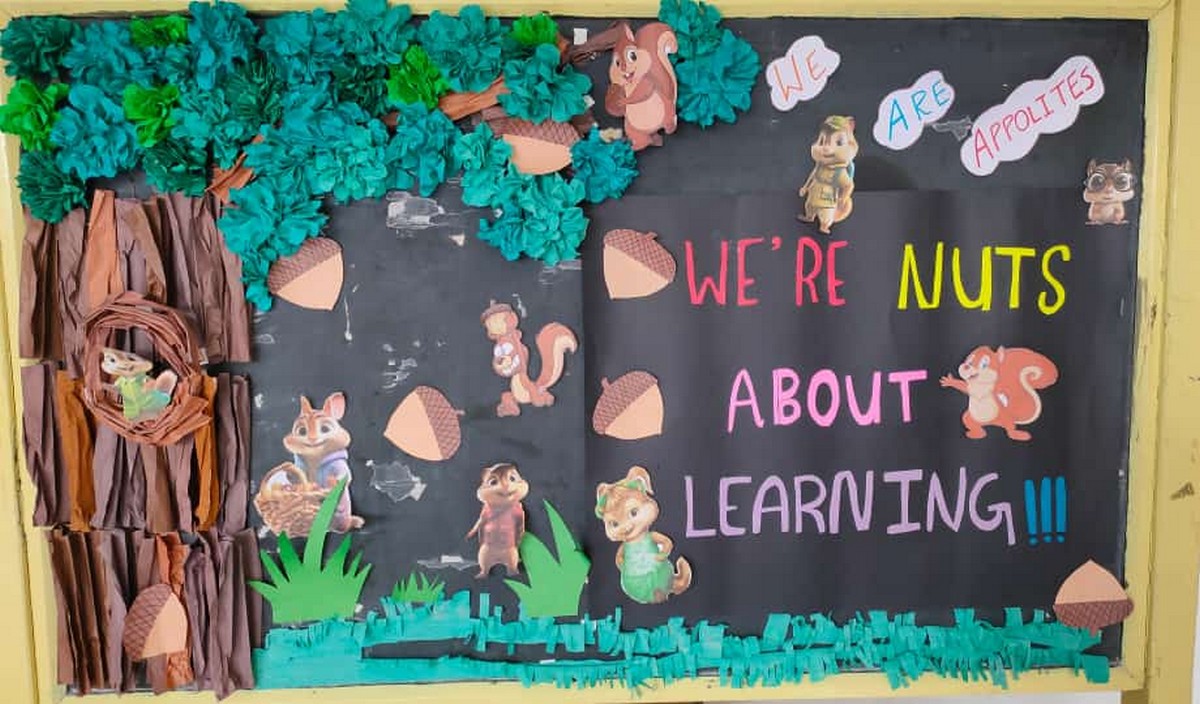 WE ARE APPOLITES
WE'RE NUTS
ABOUT
LEARNING!!!